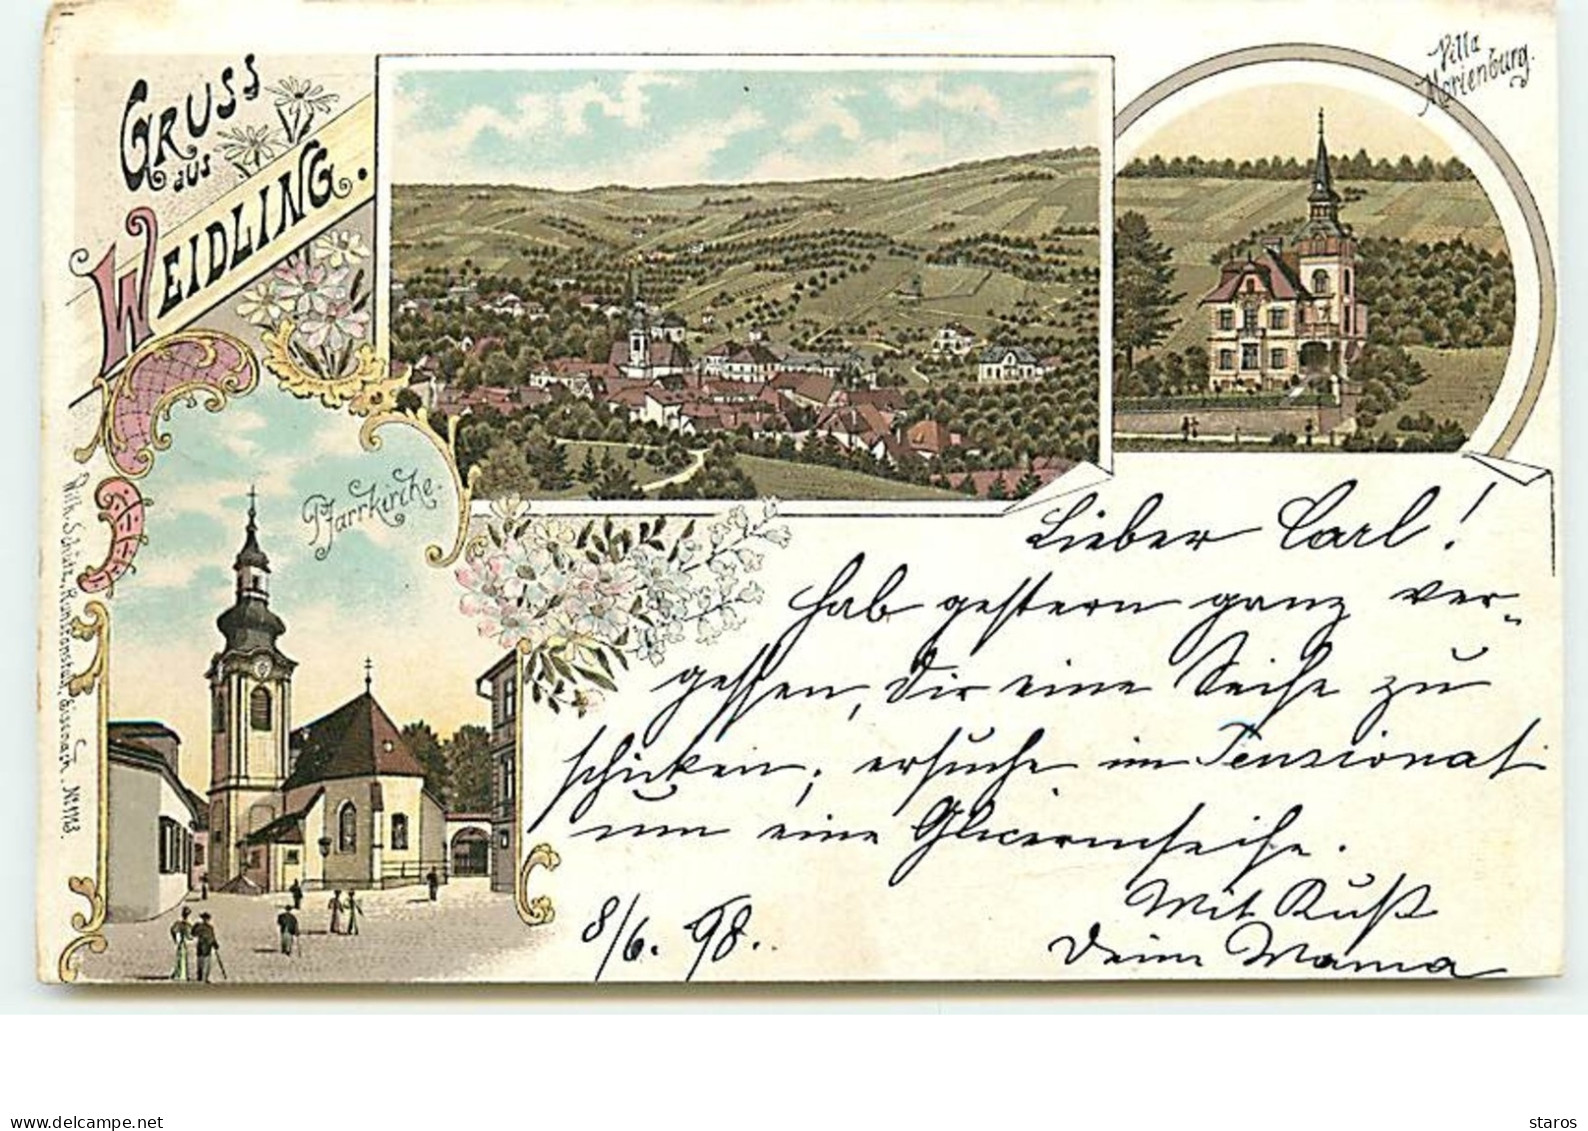 GRUSS
aus
WEIDLING.
Villa
Marienburg.
Pfarrkirche.
Wilh. Schütz, Kunstanstalt, Eisenach. No 1143.
Lieber Carl!
hab gestern ganz ver-
gessen, dir eine Seife zu
schicken, ersuche im Penzionat
um eine Glicerinseife.
Mit Kuß
Deine Mama
8/6. 98.
www.delcampe.net
staros